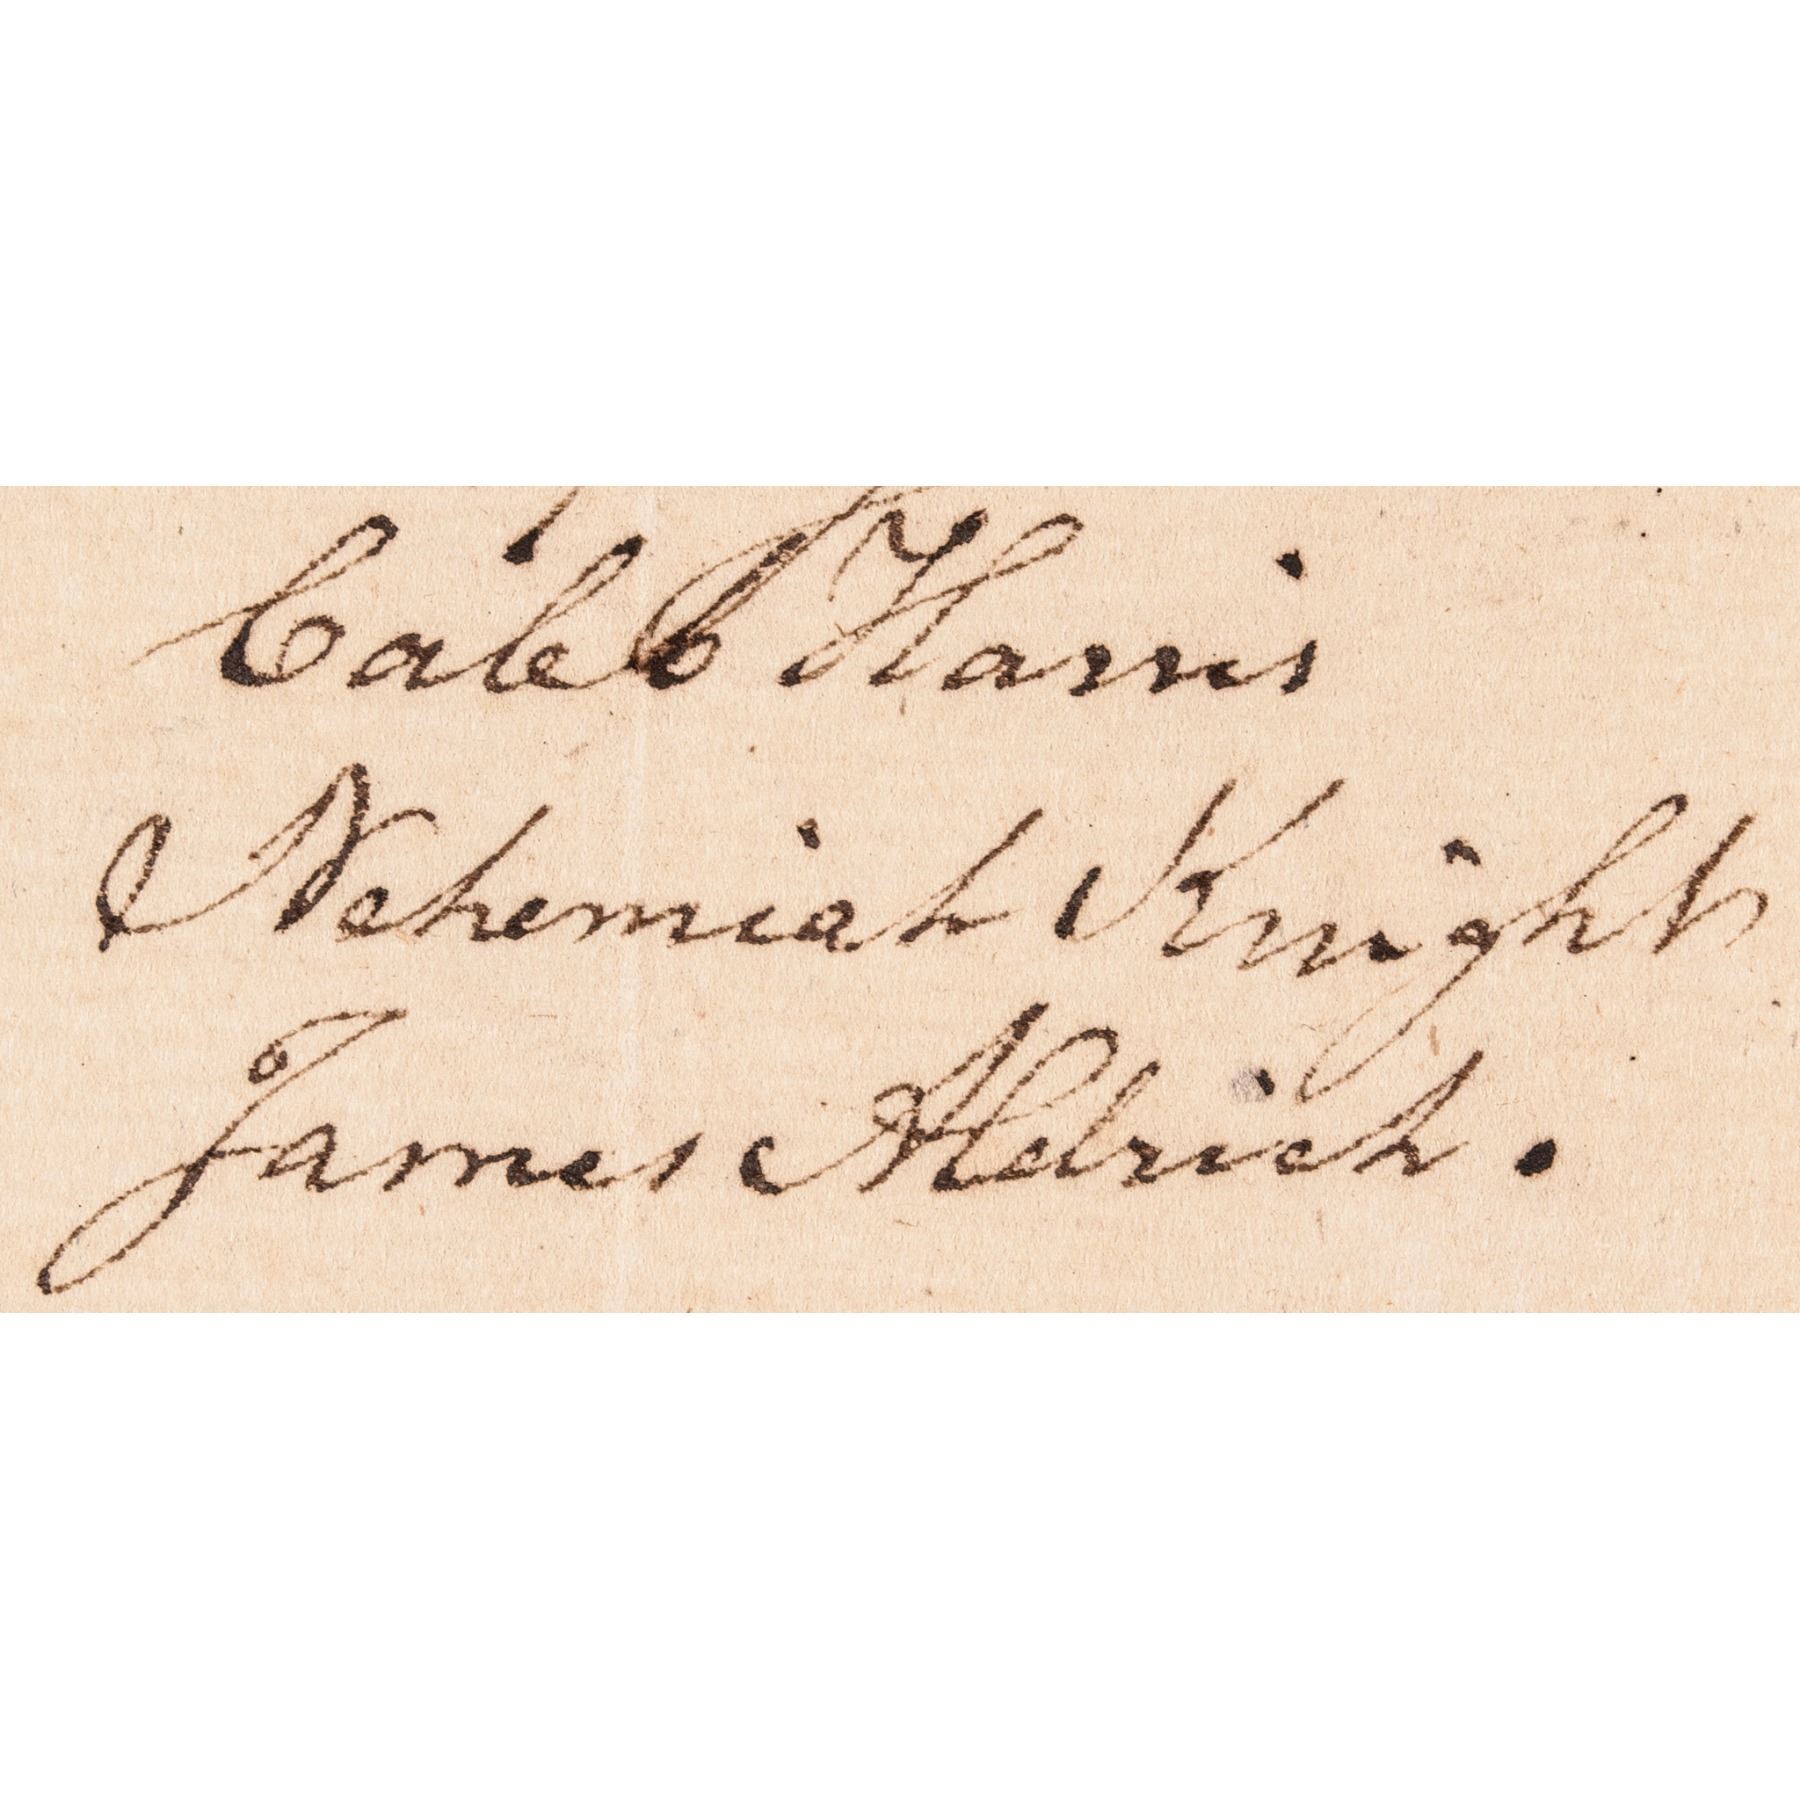 Caleb Harris
Nehemiah Knight
James Aldrich.